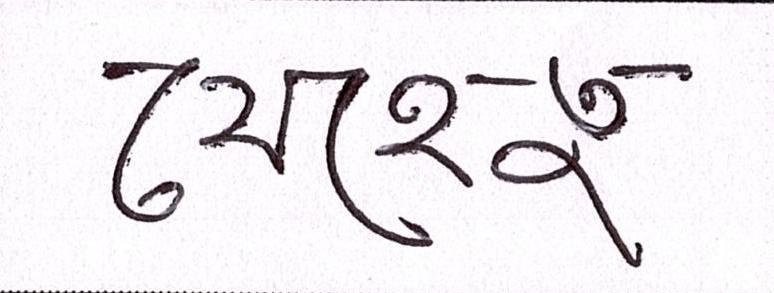 যেহেতু